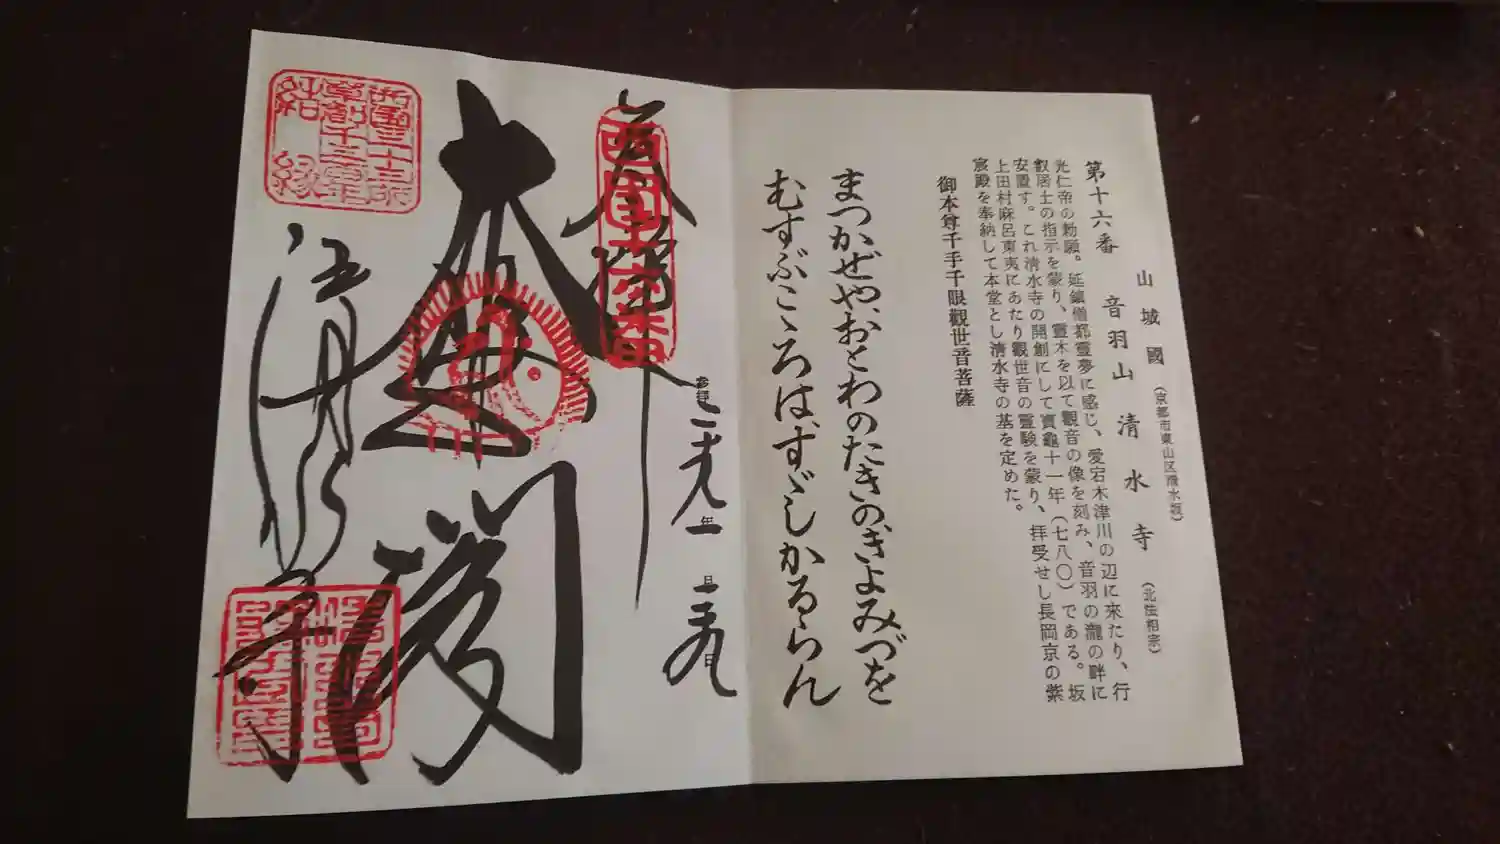 山城國（京都市東山区清水坂）
第十六番 音羽山 清水寺（北法相宗）
光仁帝の勅願。延鎮僧都靈夢に感じ、愛宕木津川の辺に來たり、行
叡居士の指示を蒙り、靈木を以て觀音の像を刻み、音羽の瀧の畔に
安置す。これ清水寺の開創にして寶龜十一年（七八〇）である。坂
上田村麻呂東夷にあたり觀世音の靈験を蒙り、拝受せし長岡京の紫
宸殿を奉納して本堂とし清水寺の基を定めた。
御本尊千手千眼觀世音菩薩
まつかぜやおとわのたきのきよみづを
むすぶこゝろはすゞしかるらん
奉拝
西国十六番
二十九年
日
大悲閣
西国三十三所
草創千三百年
結縁
清水寺